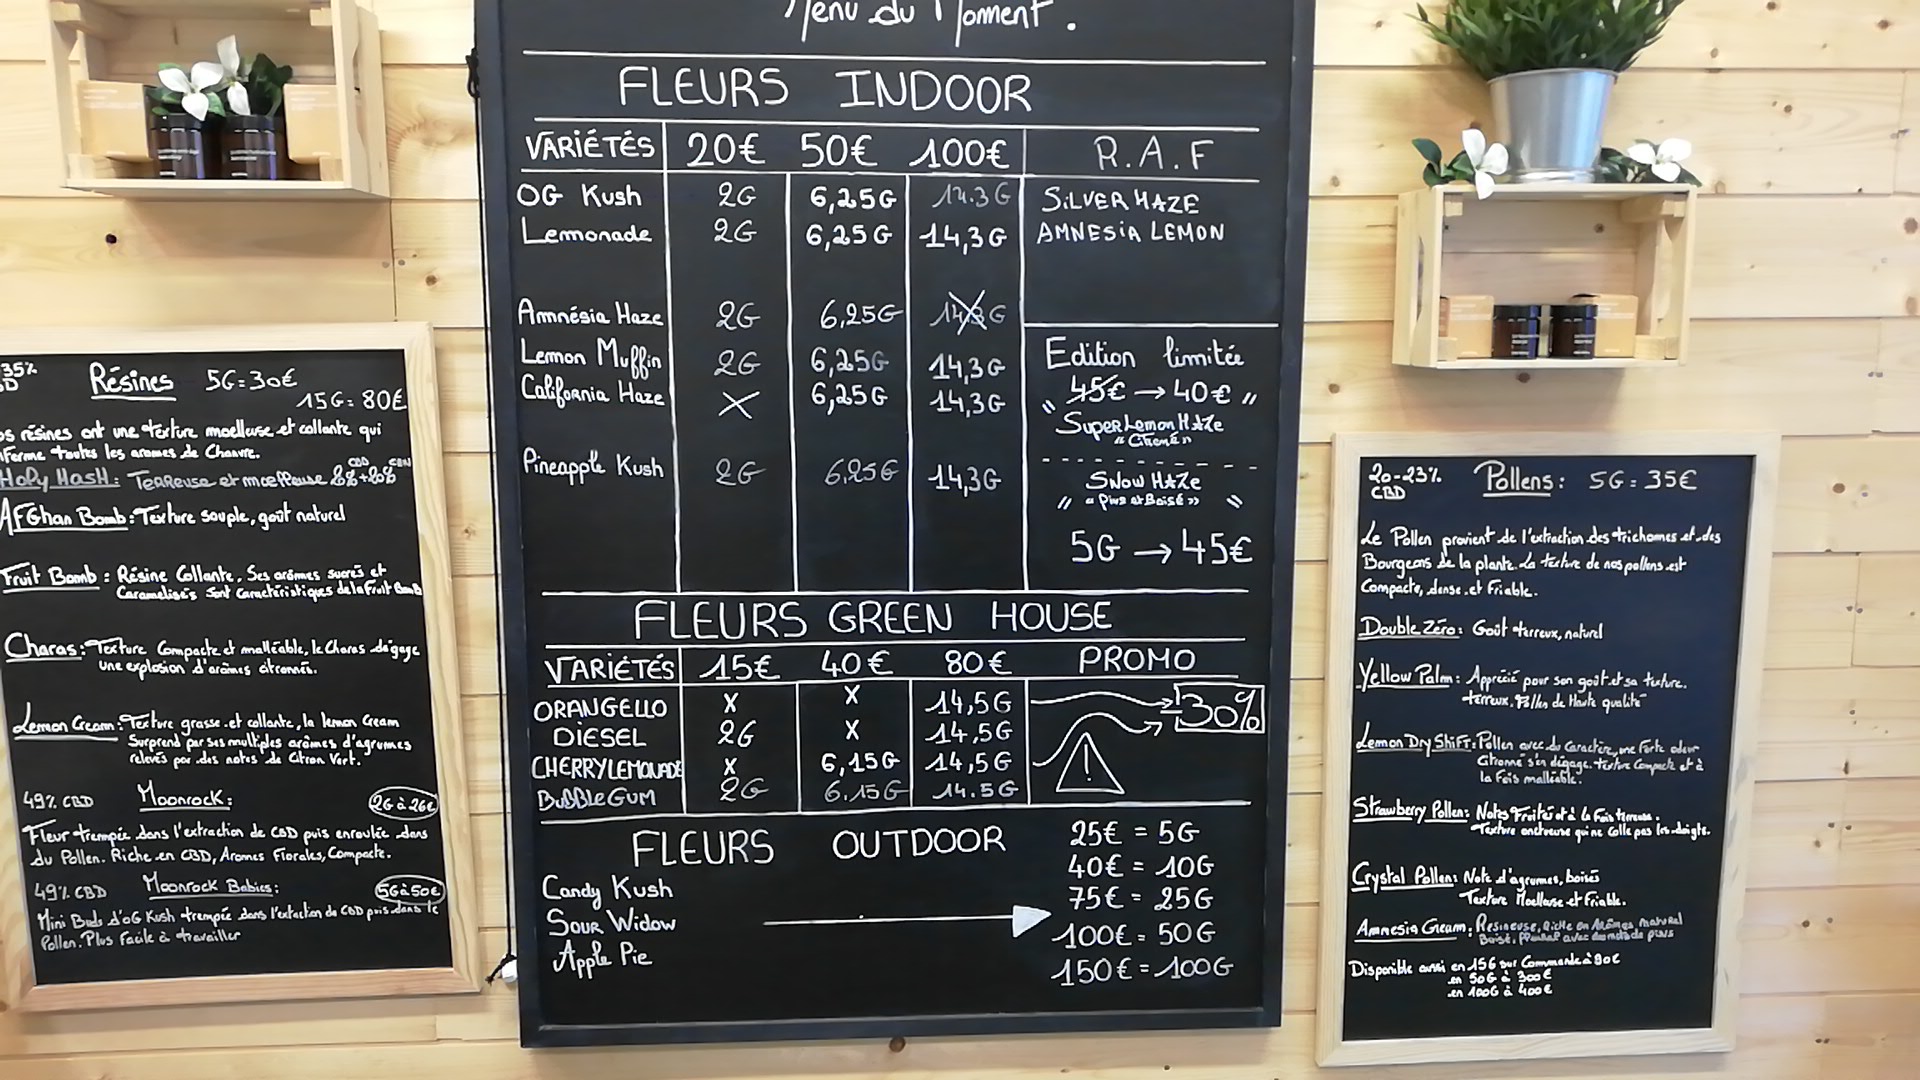 Menu du Moment.
FLEURS INDOOR
VARIÉTÉS 20€ 50€ 100€ R.A.F
OG Kush 2G 6,25G 14.3G SiLVER HAZE
Lemonade 2G 6,25G 14,3G AMNESiA LEMON
Amnésia Haze 2G 6,25G 14,3G
Lemon Muffin 2G 6,25G 14,3G
California Haze X 6,25G 14,3G
Pineapple Kush 2G 6,25G 14,3G
Edition limitée
45€ → 40€
" Super Lemon HAZe "
"Citronné"
Snow HAZe
" "Pins et Boisé" "
5G → 45€
FLEURS GREEN HOUSE
VARIÉTÉS 15€ 40€ 80€ PROMO
ORANGELLO X X 14,5G -30%
DiESEL 2G X 14,5G
CHERRYLEMONADE X 6,15G 14,5G
BUBBLEGUM 2G 6.15G 14.5G
FLEURS OUTDOOR
Candy Kush
Sour Widow
Apple Pie
25€ = 5G
40€ = 10G
75€ = 25G
100€ = 50G
150€ = 100G
35%
Résines 5G = 30€
15G = 80€
résines ont une texture moelleuse et collante qui
toutes les aromes de Chanvre.
Holy Hash : Terreuse et moelleuse
CBD CBN
Afghan Bomb : Texture souple, goût naturel
Fruit Bomb : Résine Collante. Ses arômes sucrés et
Caramelisés sont caractéristiques de la Fruit Bomb
Charas : Texture Compacte et malléable, le Charas dégage
une explosion d'arômes citronnés.
Lemon Cream : Texture grasse et collante, la lemon Cream
Surprend par ses multiples arômes d'agrumes
relevés par des notes de Citron Vert.
49% CBD Moonrock : 2G à 26€
Fleur trempée dans l'extraction de CBD puis enroulée dans
du Pollen. Riche en CBD, Aromes Florales, Compacte.
49% CBD Moonrock Babies : 5G à 50€
Mini Buds d'OG Kush trempée dans l'extaction de CBD puis dans le
Pollen. Plus Facile à travailler
20-23%
CBD
Pollens : 5G = 35€
Le Pollen provient de l'extraction des trichomes et des
Bourgeons de la plante. La texture de nos pollens est
Compacte, dense et Friable.
Double Zéro : Goût terreux, naturel
Yellow Palm : Apprécié pour son goût et sa texture.
terreux. Pollen de Haute qualité
Lemon Dry Shift : Pollen avec du Caractère, une Forte odeur
Citronné s'en dégage. texture Compacte et à
la Fois malléable.
Strawberry Pollen : Notes Fruité et à la Fois terreuse.
Texture onctueuse qui ne Colle pas les doigts.
Crystal Pollen : Note d'agrumes, boisés
Texture Moelleuse et Friable.
Amnesia Cream : Resineuse, Riche en Arômes naturel
Boisé, de pins
Disponible aussi en 15G sur Commande à 90€
en 50G à 300€
en 100G à 400€